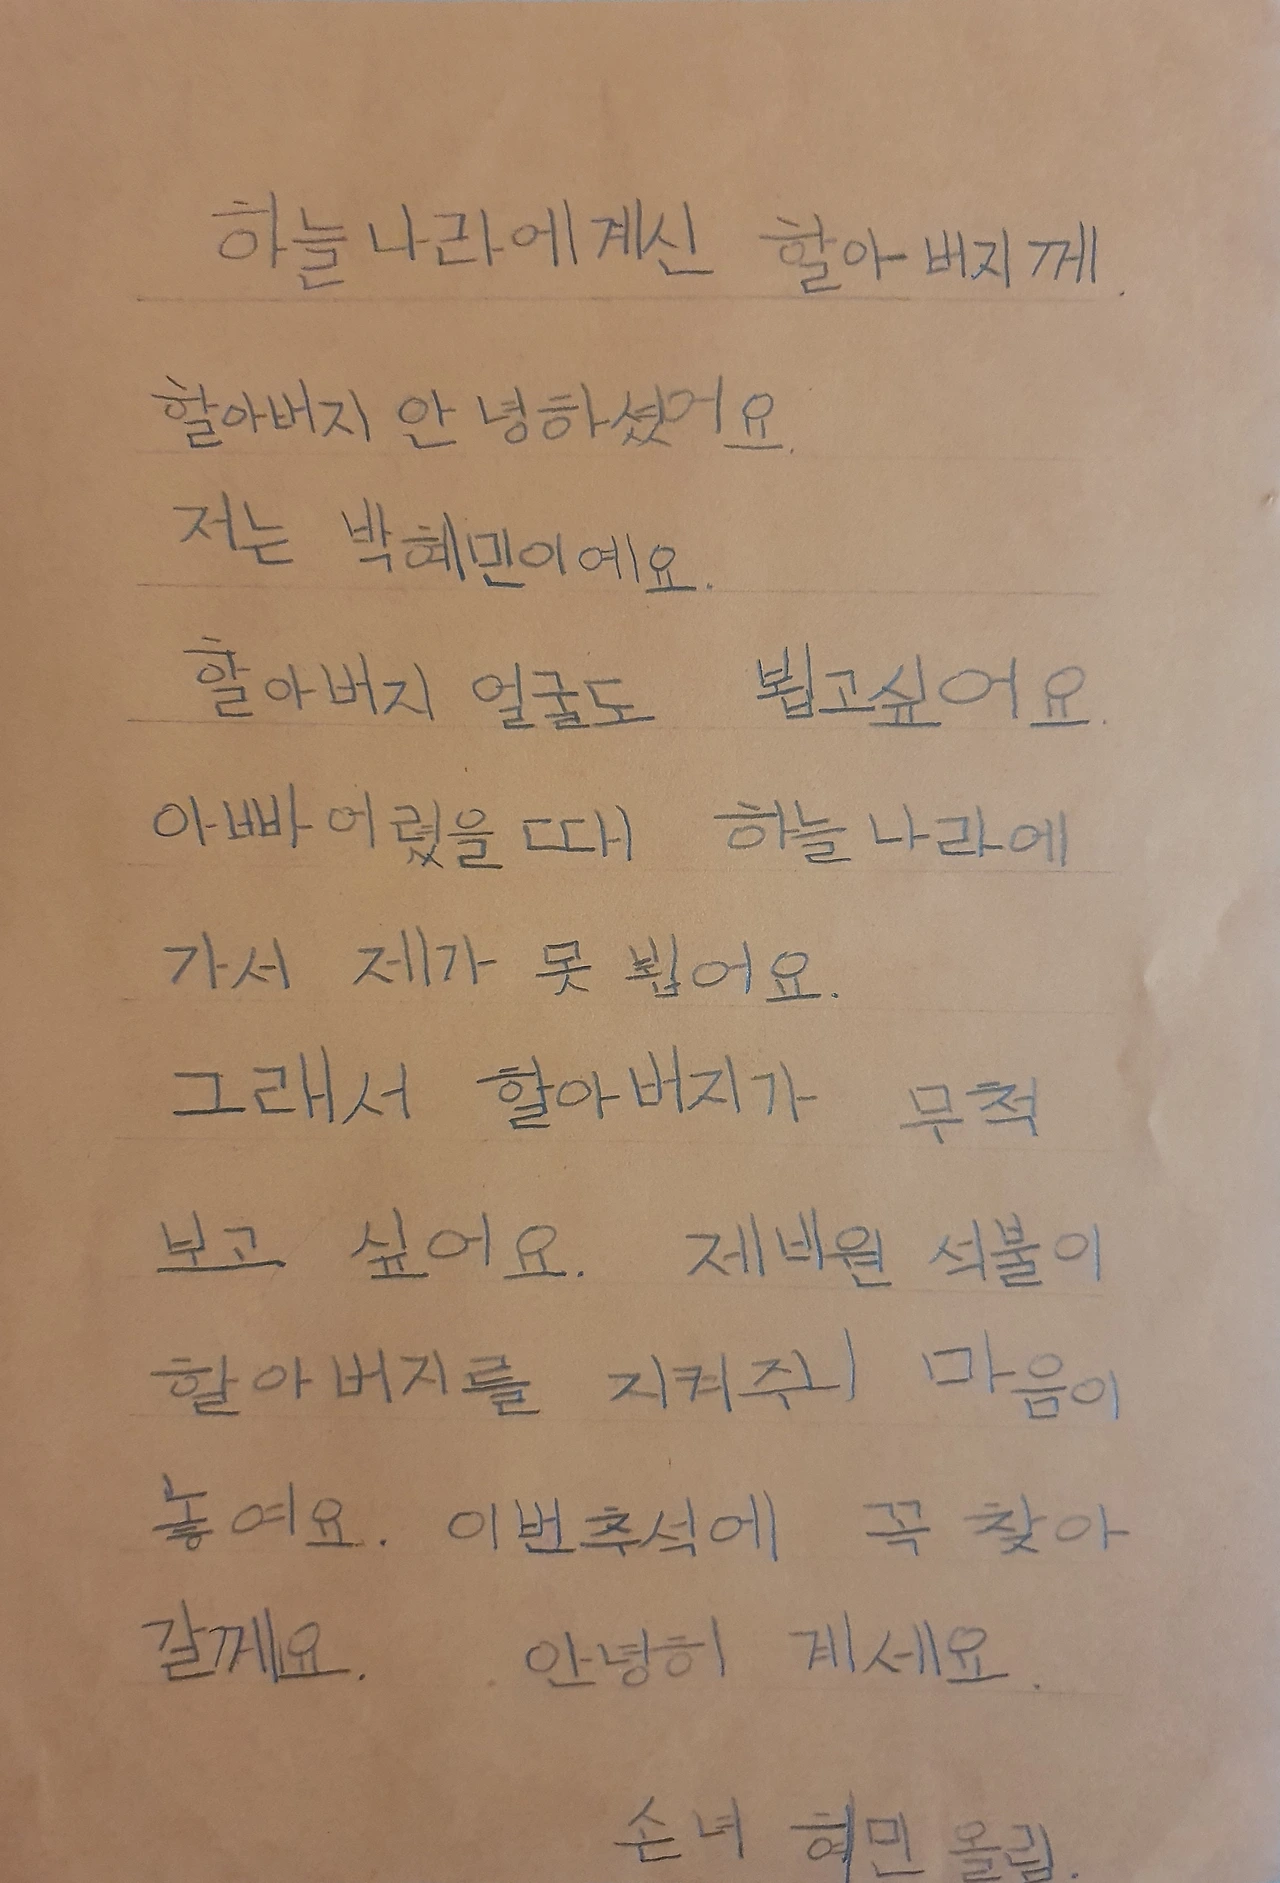 하늘나라에계신 할아버지께.
할아버지 안녕하셨어요.
저는 박혜민이예요.
할아버지 얼굴도 뵙고싶어요.
아빠 어렸을때 하늘나라에
가서 제가 못 뵙어요.
그래서 할아버지가 무척
보고 싶어요. 제비원 석불이
할아버지를 지켜주니 마음이
놓여요. 이번추석에 꼭 찾아
갈께요. 안녕히 계세요.
손녀 혜민 올림.